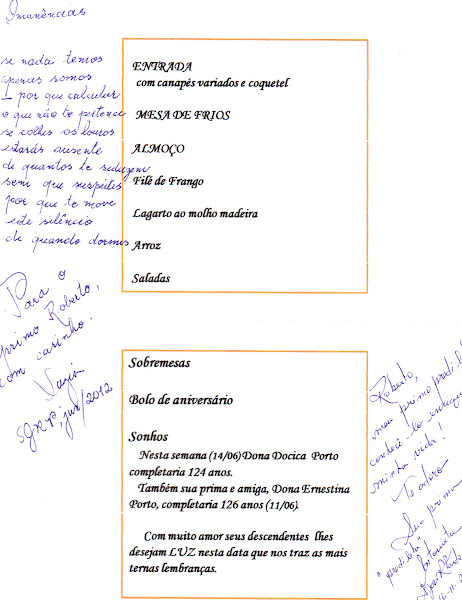 Imanências
se nada temos
apenas somos
por que calcular
o que não te pertence
se colhes os louros
estarás ausente
de quantos te seduzem
sem que suspeites
por que te move
este silêncio
de quando dormes
Para o
primo Roberto,
com carinho.
jun/2012
ENTRADA
com canapés variados e coquetel
MESA DE FRIOS
ALMOÇO
Filé de Frango
Lagarto ao molho madeira
Arroz
Saladas
Sobremesas
Bolo de aniversário
Sonhos
Nesta semana (14/06) Dona Docica Porto
completaria 124 anos.
Também sua prima e amiga, Dona Ernestina
Porto, completaria 126 anos (11/06).
Com muito amor seus descendentes lhes
desejam LUZ nesta data que nos traz as mais
ternas lembranças.
Roberto,
meu primo
minha vida!
Te adoro
Sua prima